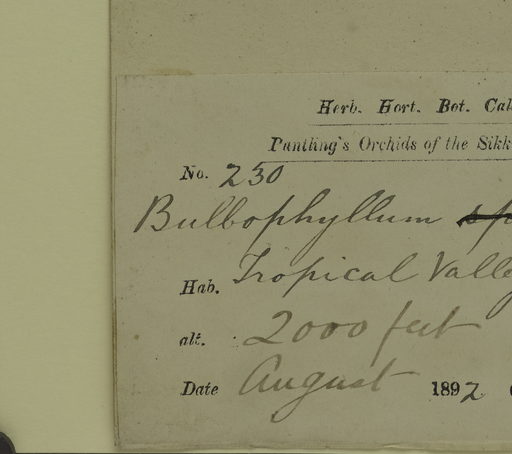 Herb. Hort. Bot. Cal
Pantling's Orchids of the Sikk
No. 230
Bulbophyllum sp
Hab. Tropical Valley
alt. : 2000 feet
Date August 1892